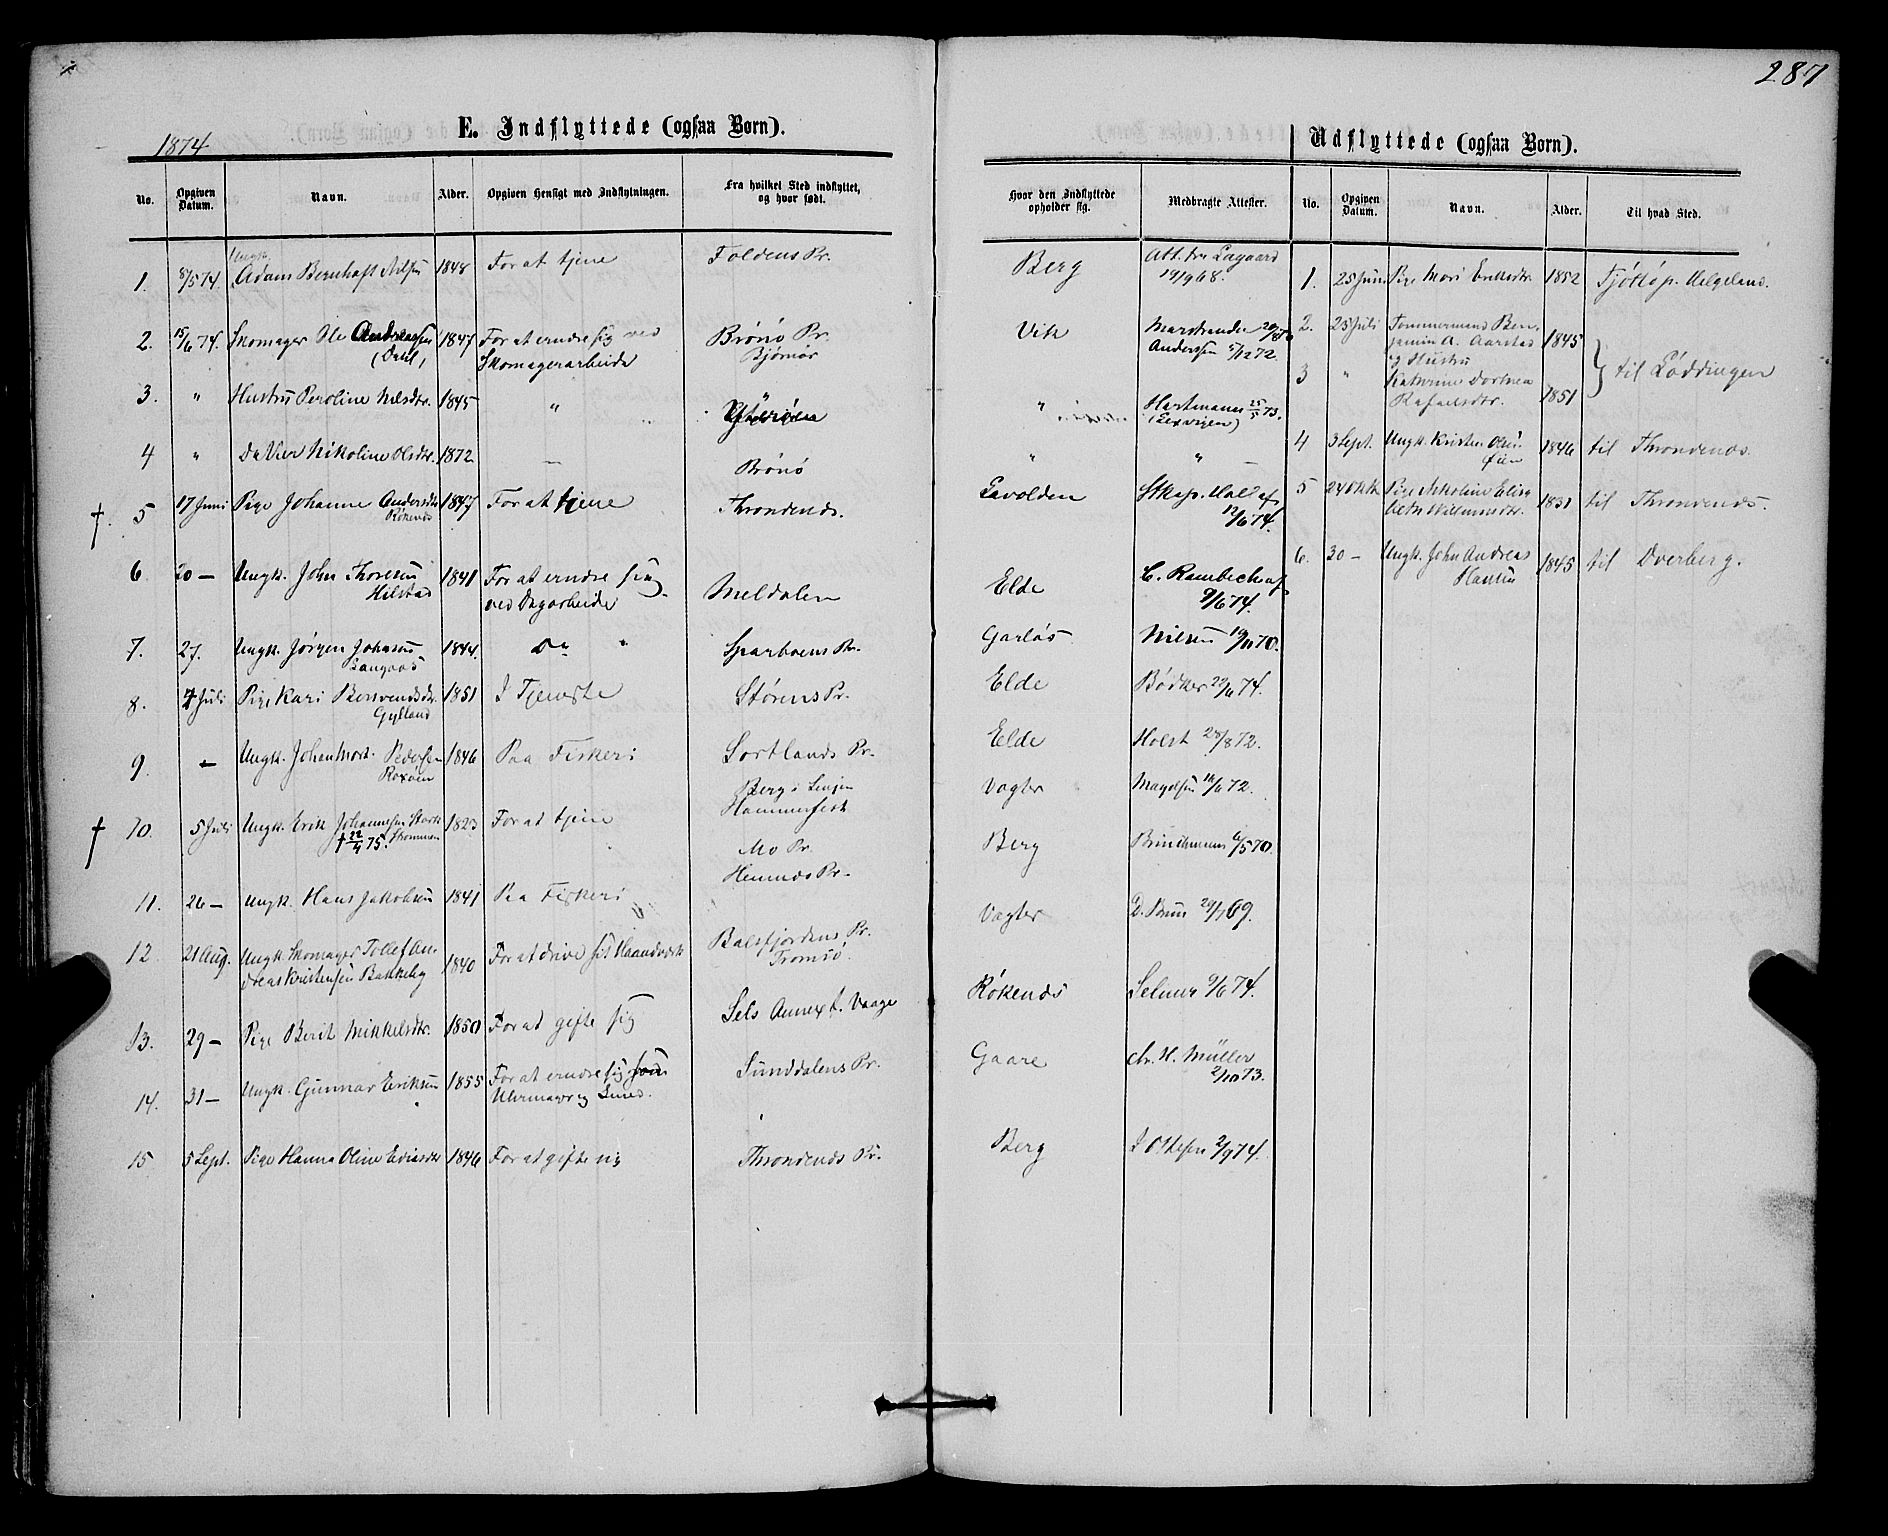 287
1874
E. Indflyttede (ogsaa Børn).
No. Opgiven Datum. Navn. Alder. Opgiven Hensigt med Indflytningen. Fra hvilket Sted indflyttet, og hvor født.
1. 8/5 74. Ungk. Adam Bernhaft Nilsen 1848 For at tjene Foldens Pr.
2. 15/6 74. Skomager Ole Andreassen 1847 For at ernære sig ved Brønø Pr.
(Dahl) Skomagerarbeide Bjørnør
3. " Hustru Peroline Nilsdtr. 1845 " Ytterøen
4 " Datter Nikoline Olsdtr. 1872 — Brønø
† 5 17 Juni Pige Johanne Andersdtr 1847 For at tjene Throndenæs.
Røkenæs
6 20 — Ungk. John Thoresen 1841 For at ernære sig Meldalen
Hilstad ved Dagarbeide
7. 27. Ungk. Jørgen Johnsen 1844. Do " Sparboens Pr.
Langaas
8. 4 Juli Pige Kari Bersvendsdtr. 1851 I Tjeneste Størens Pr.
Gylland
9. — Ungk. Johan Mort. Pedersen 1846 Paa Fiskeri Sortlands Pr.
Roxøen Berg i Senjen
Hammerfest
† 10. 5 Juli Ungk. Erik Johannesen Stork 1823 For at tjene Mo Pr.
† 22/4 75. Hemnæs Pr.
11. 26 — Ungk. Hans Jakobsen 1841 Paa Fiskeri
12. 21 Aug. Ungk. Skomager Tollef An- 1840 For at drive sit Haandværk Balsfjordens Pr.
dreas Kristensen Bakkeby Tromsø.
13. 29 — Pige Berit Mikkelsdtr. 1850 For at gifte sig Sels Annex t. Vaage
14. 31 — Ungk. Gunnar Eriksen 1855 For at ernære sig som Sunddalens Pr.
Uhrmager og Smed.
15 5 Sept. Pige Hanna Oline 1846 For at gifte sig Throndenæs Pr.
Hvor den Indflyttede opholder sig. Medbragte Attester.
Berg Att. fra Lagaard
19/9 68.
Vik Marstrander
Andersen 5/12 72.
" Hartmann 25/5 73.
(Lexvigen)
" "
Gavolden Stkap. Hall af
12/6 74.
Elde C. Rambech af
9/6 74.
Garlås Nilsen 19/11 70.
Elde Bødker 22/6 74.
Elde Holst 28/8 72.
Vagter 72.
Berg Brinchmann 6/5 70.
Vagter D. Bruun 29/7 69.
Røkenæs Selmer 9/6 74.
Gaare Chr. H. Müller
2/10 73.
Berg J Ottesen 2/9 74.
Udflyttede (ogsaa Børn).
No. Opgiven Datum. Navn. Alder. Til hvad Sted.
1. 25 Juni Pige Mari Eriksdtr. 1852 Tjøttø p. Helgeland.
2. 25 Juli Tømmermand Ben-
jamin A. Aarstad 1845
og Hustru
3 " Katrine Dorthea } til Løddingen
Rafaelsdtr. 1851
4 3 Sept. Ungk. Kristen Olsen 1846 til Throndenæs.
Øien
5 24 Oktb Pige Nikoline Elisa 1831 til Throndenæs.
beth
6. 30 — Ungk. John Andreas 1845 til Dverberg.
Hansen